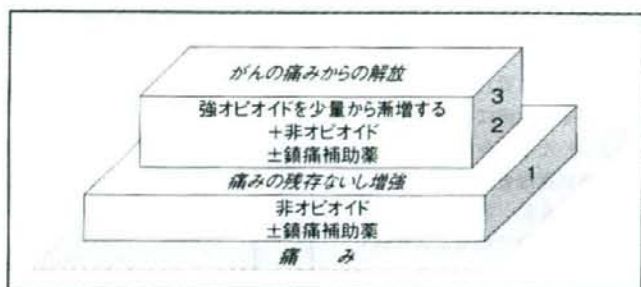 がんの痛みからの解放
強オピオイドを少量から漸増する
+非オピオイド
±鎮痛補助薬
3
2
痛みの残存ないし増強
非オピオイド
±鎮痛補助薬
1
痛 み